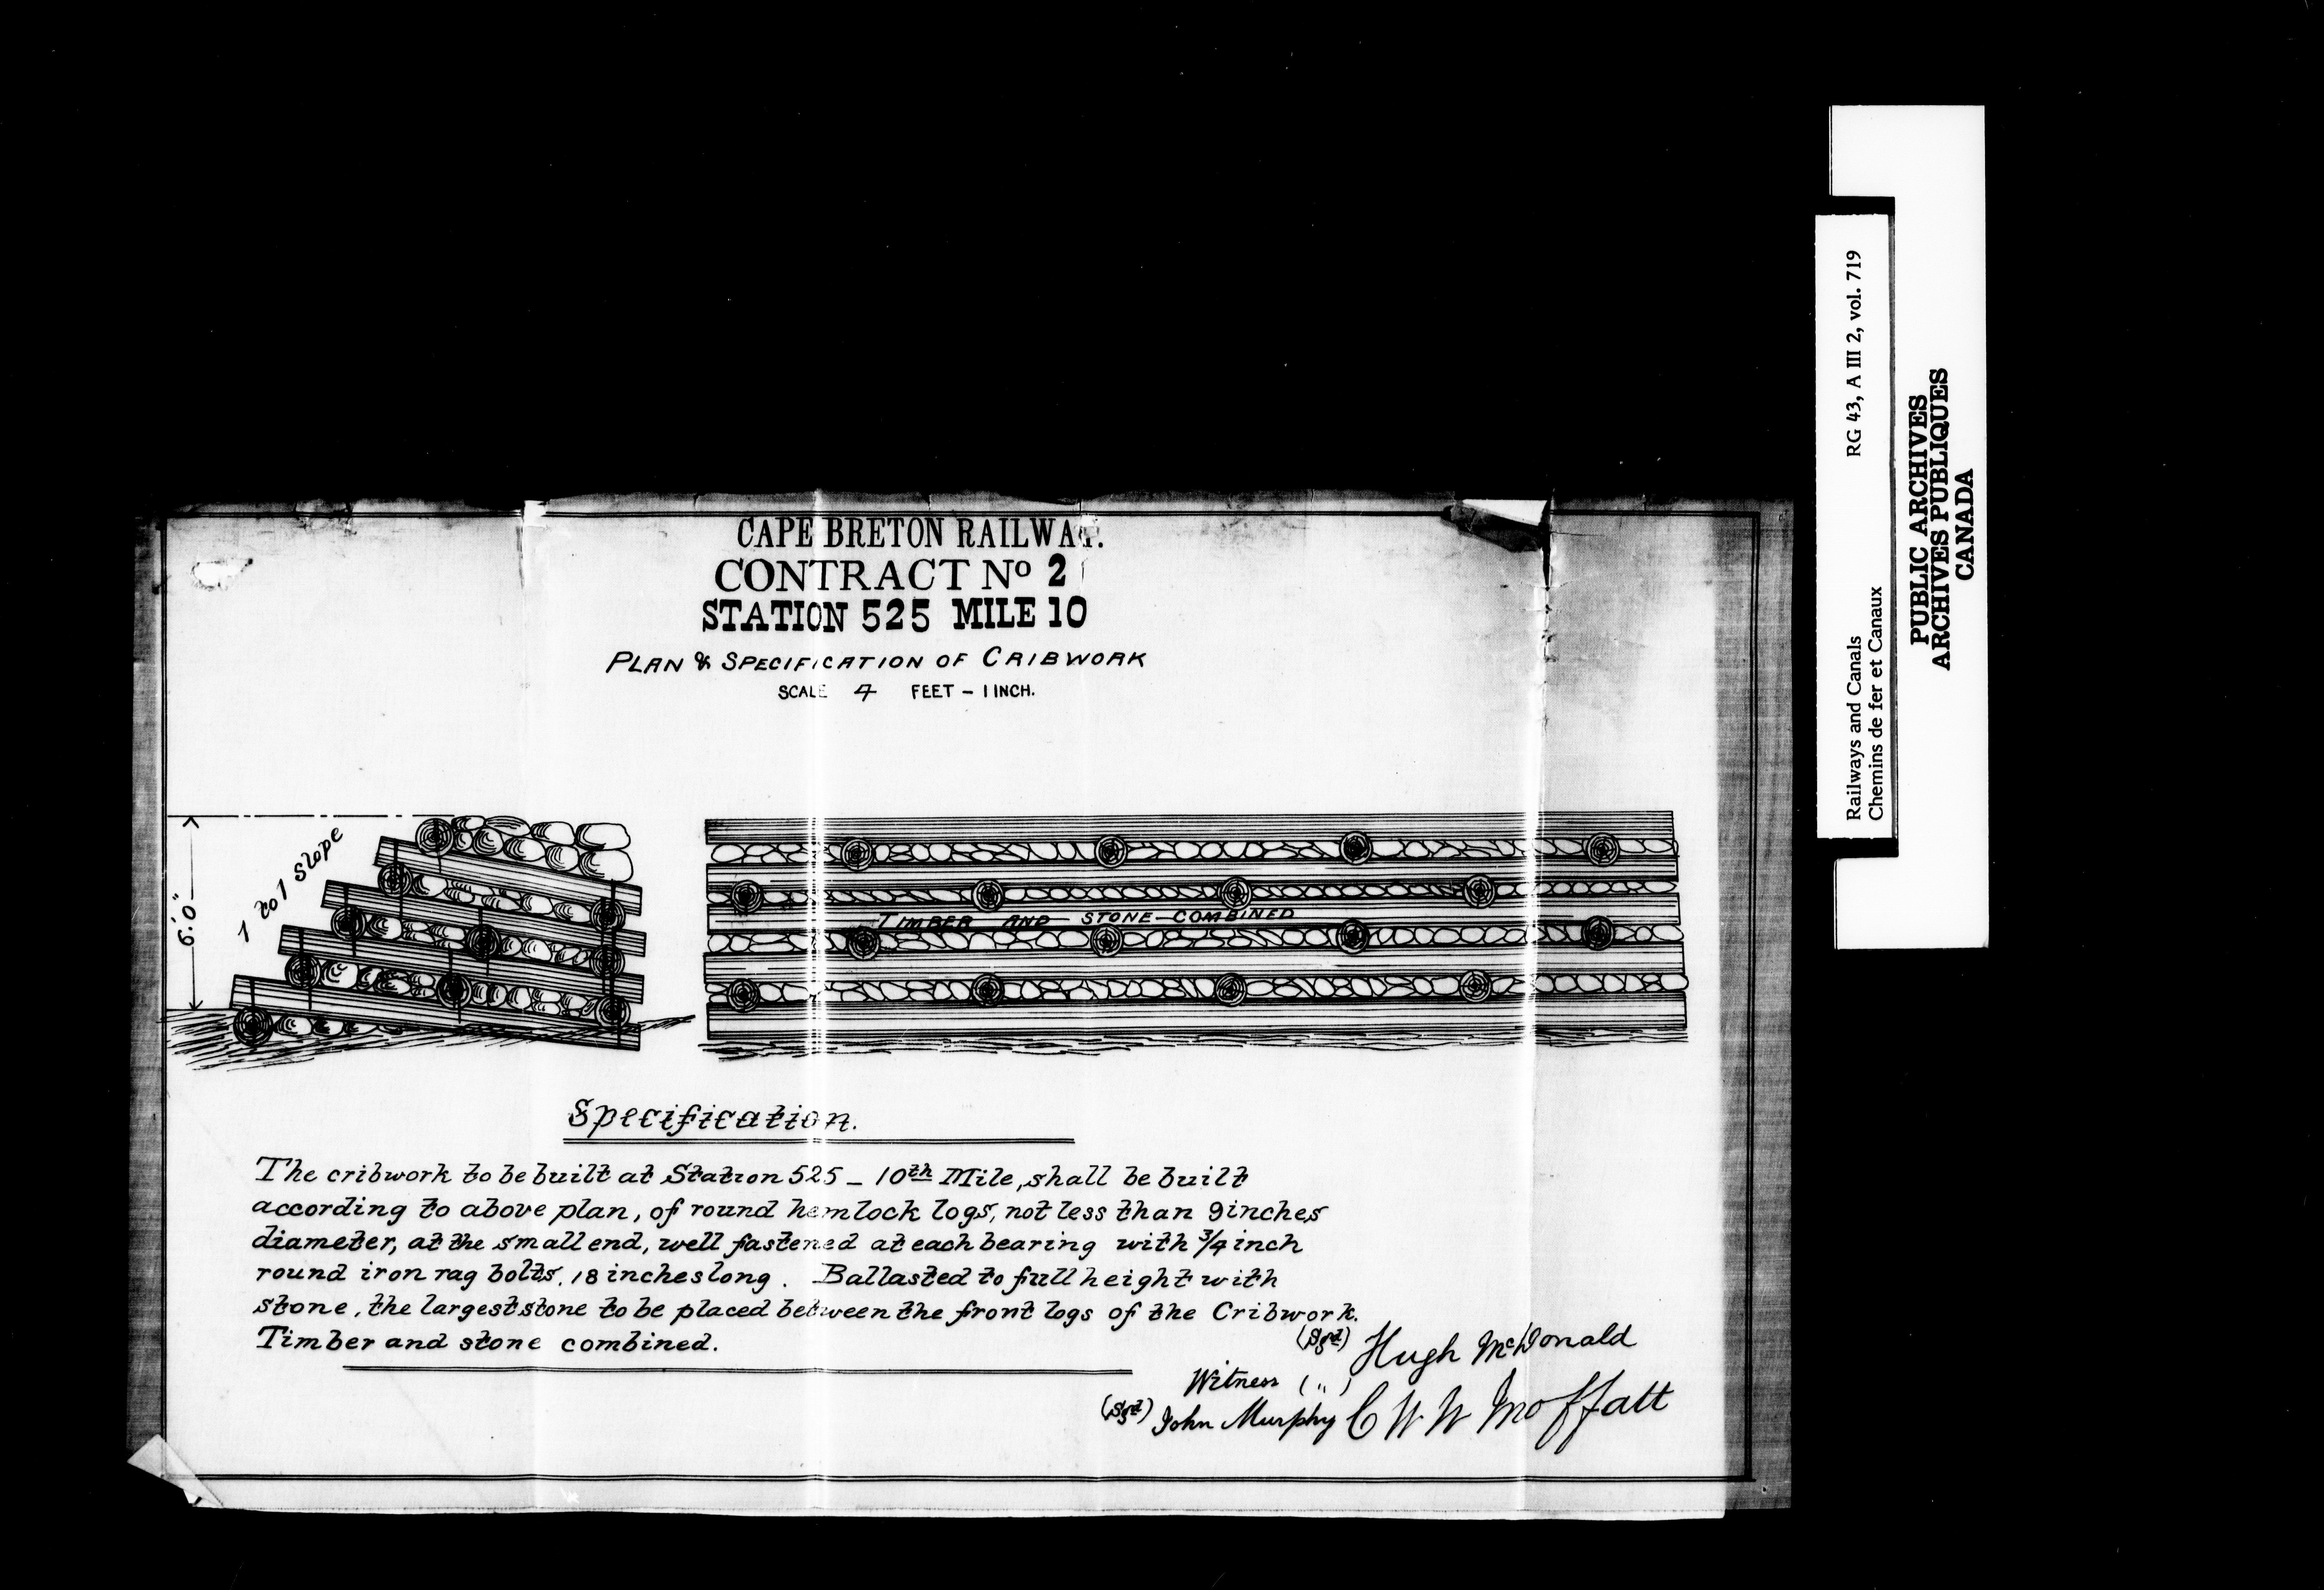 CAPE BRETON RAILWAY.
CONTRACT Nº 2
STATION 525 MILE 10
PLAN & SPECIFICATION OF CRIBWORK
SCALE 4 FEET – 1 INCH.
6'.0"
1 to 1 slope
TIMBER AND STONE COMBINED
Specification.
The cribwork to be built at Station 525 – 10th Mile, shall be built
according to above plan, of round hemlock logs, not less than 9 inches
diameter, at the small end, well fastened at each bearing with 3/4 inch
round iron rag bolts, 18 inches long. Ballasted to full height with
stone, the largest stone to be placed between the front logs of the Cribwork.
Timber and stone combined.
(Sgd) Hugh McDonald
Witness ( " ) C W W Moffatt
(Sgd) John Murphy
Railways and Canals RG 43, A III 2, vol. 719
Chemins de fer et Canaux
PUBLIC ARCHIVES
ARCHIVES PUBLIQUES
CANADA